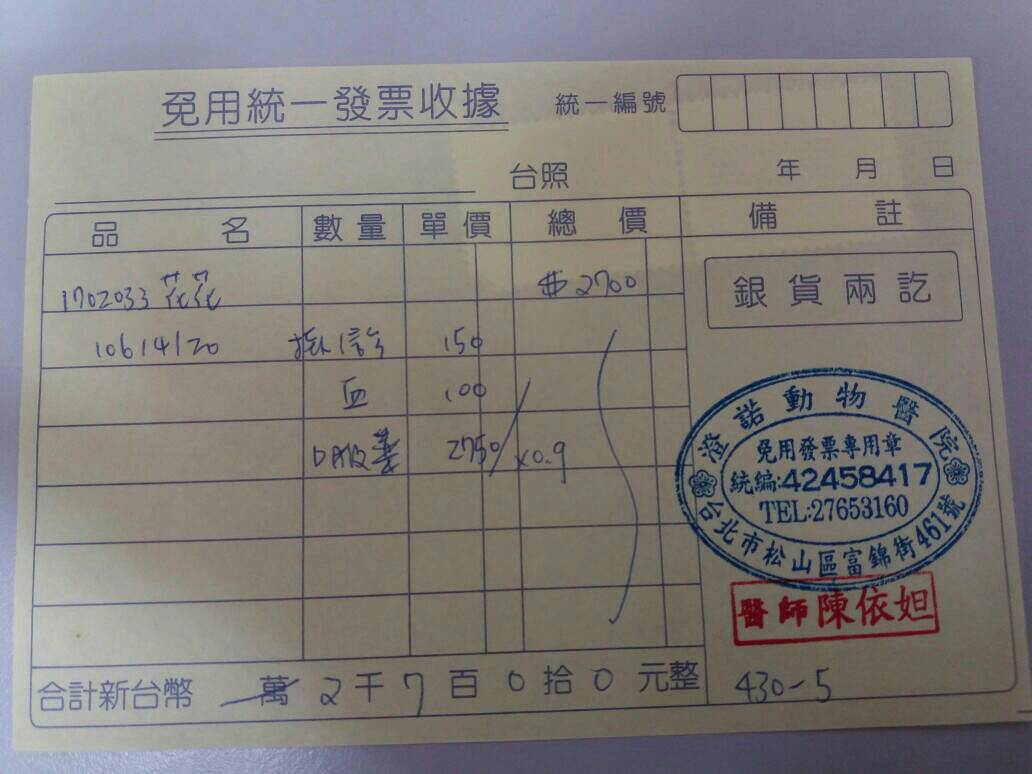 免用統一發票收據 統一編號
台照 年 月 日
品 名 數量 單價 總 價 備 註
1702033 花花 #2700
銀貨兩訖
10614120 掛信診 150
血 100
2750/ x0.9
澄諾動物醫院
免用發票專用章
統編:42458417
TEL:27653160
台北市松山區富錦街461號
醫師陳依妲
合計新台幣 萬 2 千 7 百 0 拾 0 元整
430-5